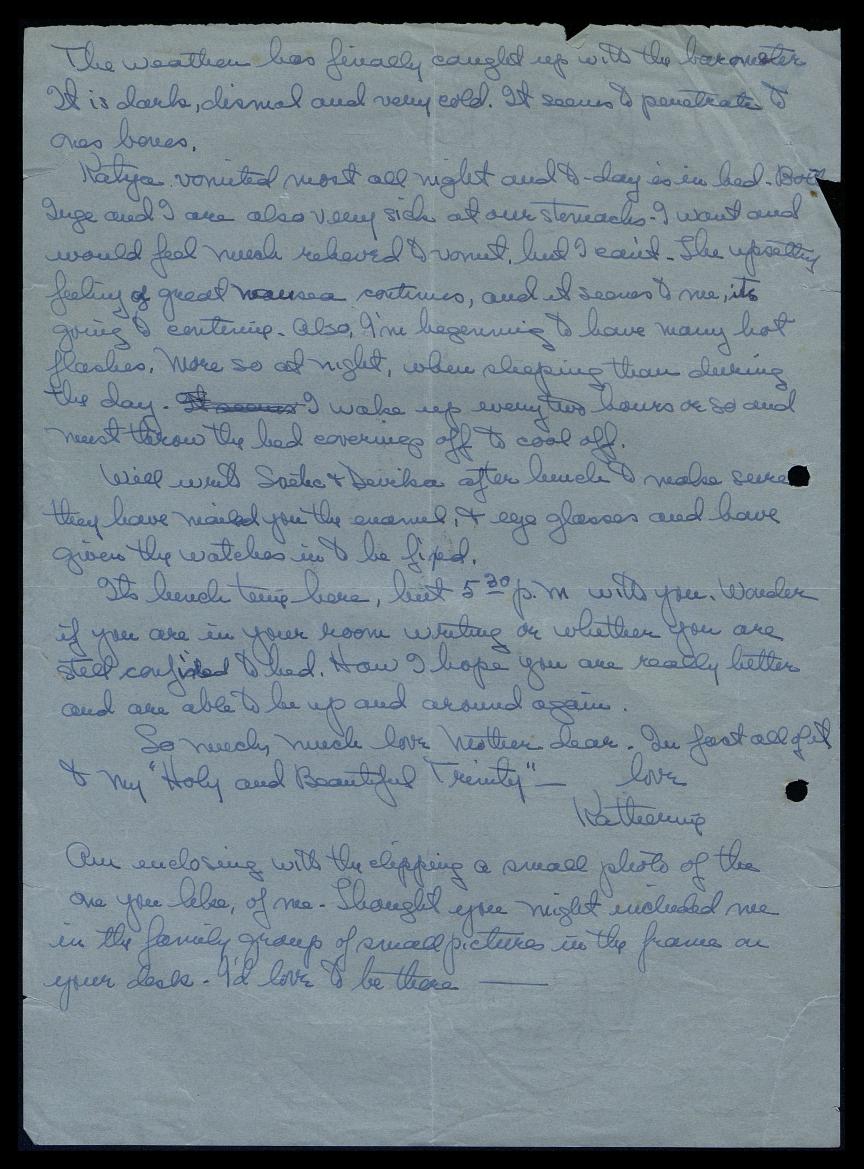 The weather has finally caught up with the barometer
It is dark, dismal and very cold. It seems to penetrate to
ones bones.
Katya vomited most all night and to-day is in bed. Both
Inge and I are also very sick at our stomachs. I want and
would feel much relieved to vomit, but I can't. The upsetting
feeling of great nausea continues, and it seems to me, its
going to continue. Also, I'm beginning to have many hot
flashes. More so at night, when sleeping than during
the day. It seems I wake up every two hours or so and
must throw the bed coverings off to cool off.
Will write & Devika after lunch to make sure
they have mailed you the enamel, & eye glasses and have
given the watches in to be fixed.
Its lunch time here, but 5 30 p.m with you. Wonder
if you are in your room writing or whether you are
still confined to bed. How I hope you are really better
and are able to be up and around again.
So much, much love Mother dear. In fact all of it
to my "Holy and Beautiful Trinity" — love
Katherine
Am enclosing with the clipping a small photo of the
one you like, of me. Thought you might included me
in the family group of small pictures in the frame on
your desk. I'd love to be there —